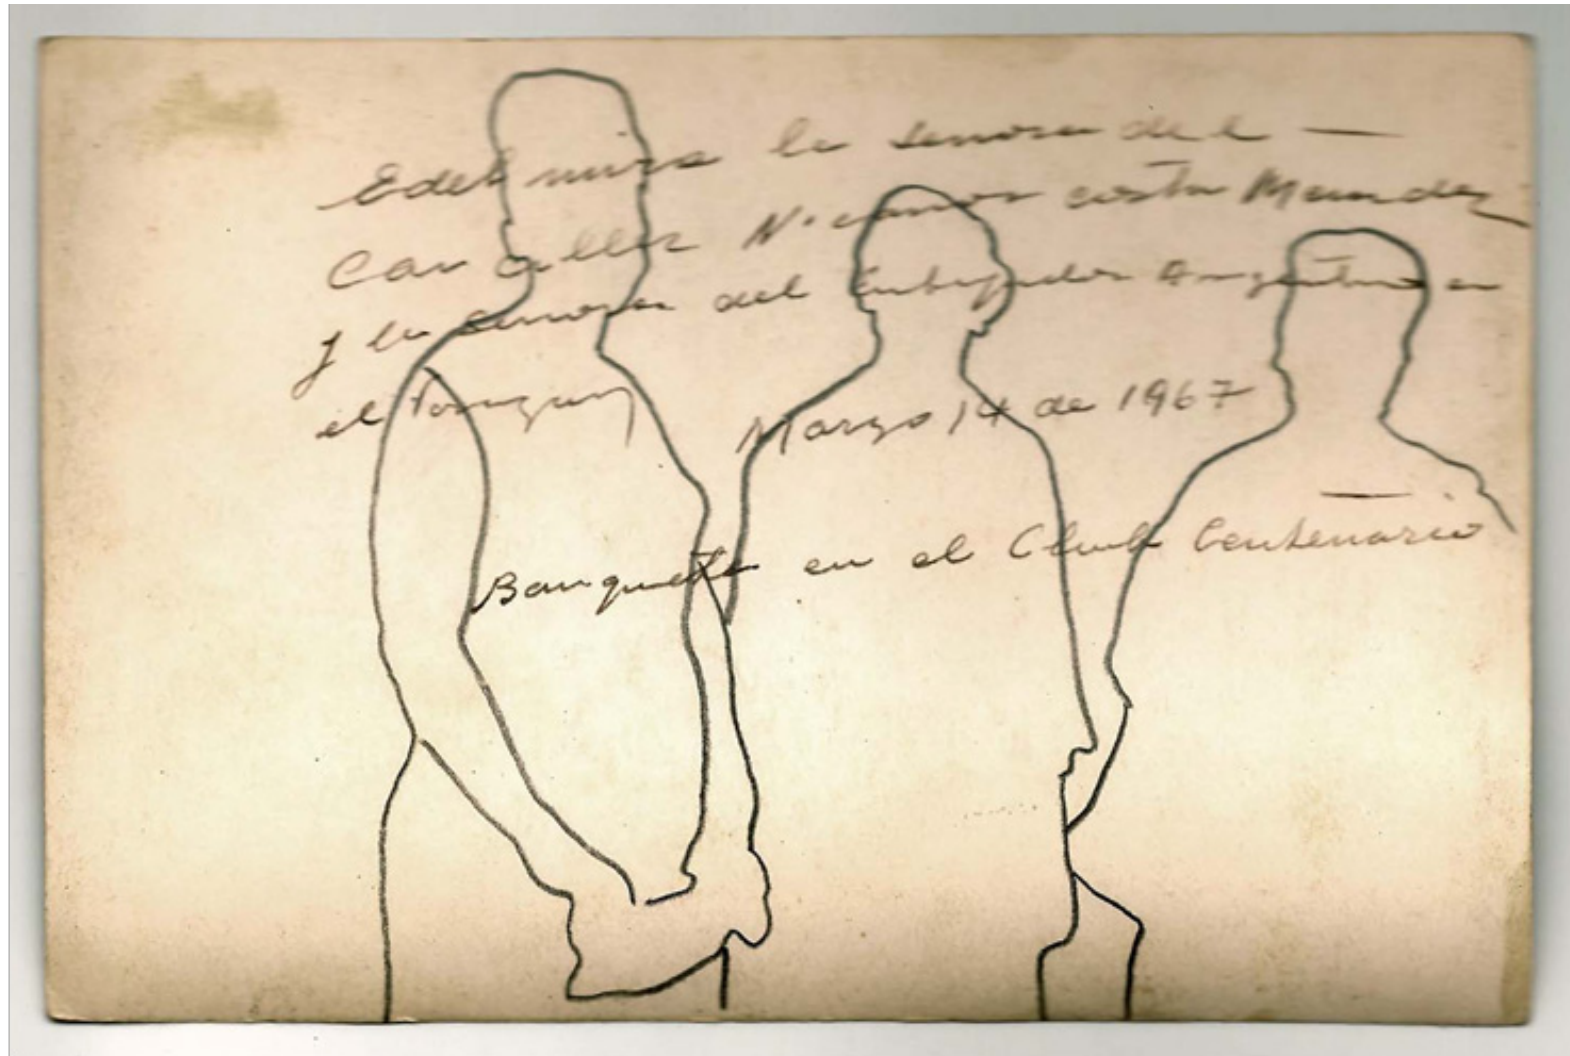 Edelmira la senora del —
Canciller Nicanor costa Mendez
y la senora del Embajador Argentino en
el Paraguay Marzo 14 de 1967
Banquete en el Club Centenario